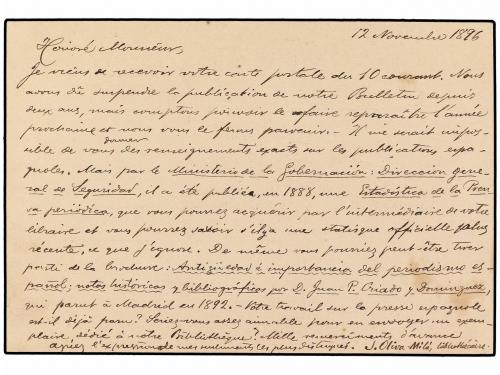 12 Novembre 1896
Honoré Monsieur,
Je viens de recevoir votre carte postale du 10 courant. Nous
avons dû suspendre la publication de notre Bulletin depuis
deux ans, mais comptons pouvoir le faire reparaître l'année
prochaine et nous vous le ferons parvenir. – Il me serait impos-
sible de vous donner des renseignements exacts sur les publications espa-
gnoles. Mais par le Ministerio de la Gobernación: Direccion gene-
ral de Seguridad, il a été publiée, en 1888, une Estadística de la Pren-
sa periódica, que vous pourrez acquérir par l'intermédiaire de votre
libraire et vous pourrez savoir s'il y a une statistique officielle plus
récente, ce que j'ignore. De même vous pourriez peut être tirer
parti de la brochure: Antigüedad é importancia del periodismo es-
pañol; notas históricas y bibliográficas por D. Juan P. Criado y Dominguez,
qui parut à Madrid en 1892. – Votre travail sur la presse espagnole
est-il déjà paru? Seriez-vous assez aimable pour en envoyer un exem-
plaire, dédié à notre Bibliothèque? Mille remerciments d'avance
agréez l'expression de mes sentiments les plus distingués. J. Oliva Milá, bibliothécaire.